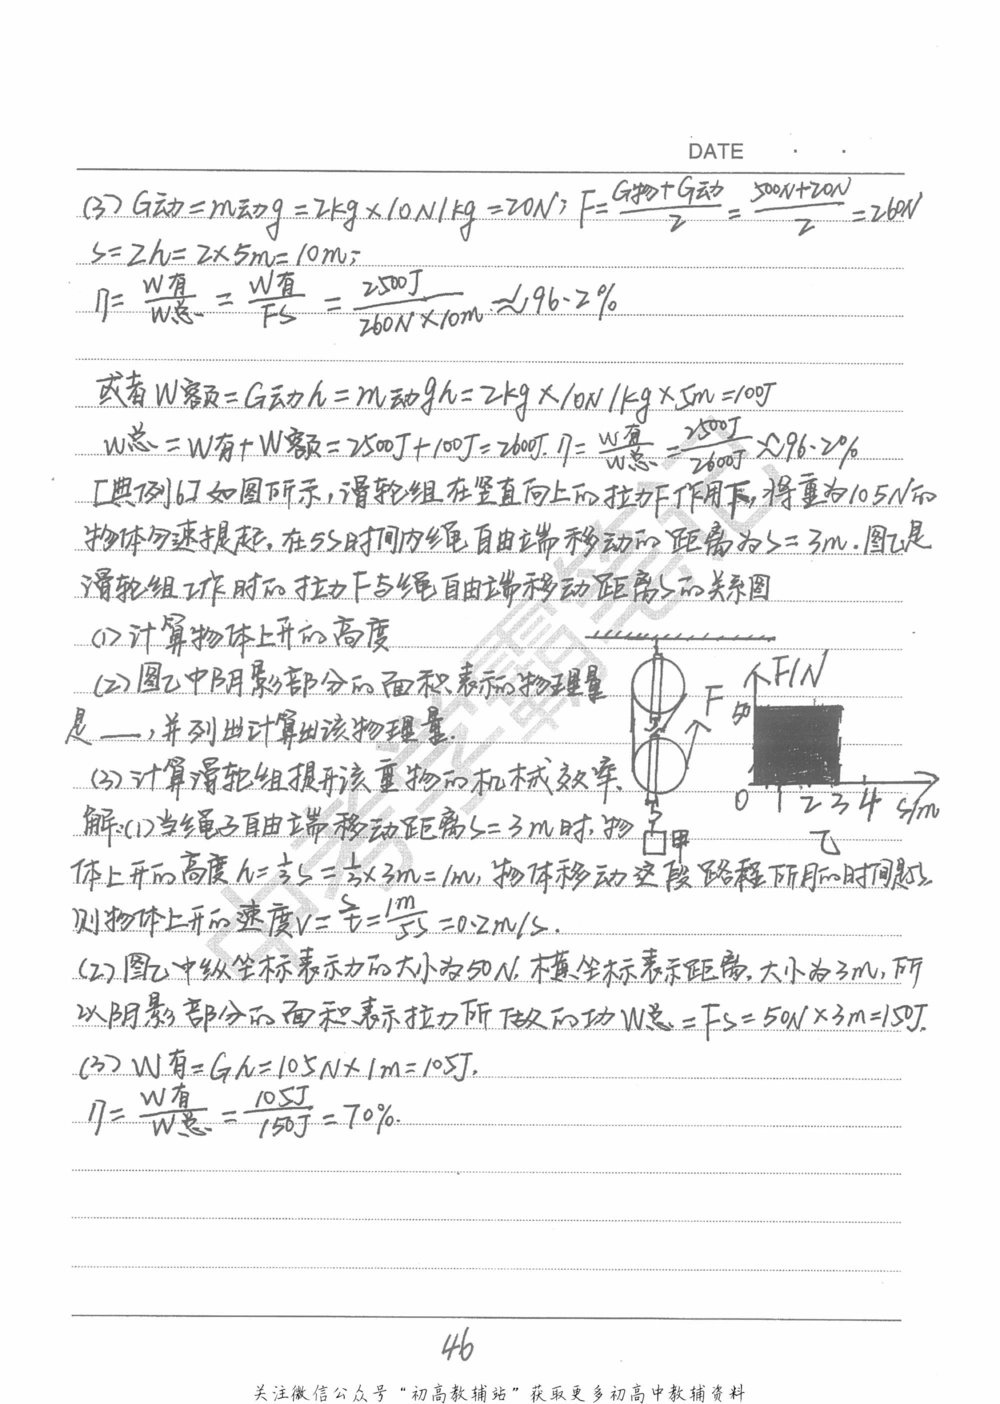 DATE · ·
(3) G动=m动g=2kg×10N/kg=20N; F=(G物+G动)/2=(500N+20N)/2=260N
s=2h=2×5m=10m;
η=W有/W总=W有/Fs=2500J/(260N×10m)≈96.2%
或者W额=G动h=m动gh=2kg×10N/kg×5m=100J
W总=W有+W额=2500J+100J=2600J. η=W有/W总=2500J/2600J≈96.2%
[典例6]如图所示,滑轮组在竖直向上的拉力F作用下,将重为105N的
物体匀速提起,在5s时间内绳自由端移动的距离为s=3m.图乙是
滑轮组工作时的拉力F与绳自由端移动距离s的关系图
(1)计算物体上升的高度
(2)图乙中阴影部分的面积表示的物理量
是___,并列出计算出该物理量.
(3)计算滑轮组提升该重物的机械效率.
F
甲
F/N
50
0 1 2 3 4 s/m
乙
解:(1)当绳子自由端移动距离s=3m时,物
体上升的高度h=1/3s=1/3×3m=1m,物体移动这段路程所用的时间是5s
则物体上升的速度v=s/t=1m/5s=0.2m/s.
(2)图乙中纵坐标表示力的大小为50N.横坐标表示距离,大小为3m,所
以阴影部分的面积表示拉力所做的功W总=Fs=50N×3m=150J.
(3)W有=Gh=105N×1m=105J.
η=W有/W总=105J/150J=70%.
中考学霸笔记
46
关注微信公众号“初高教辅站”获取更多初高中教辅资料